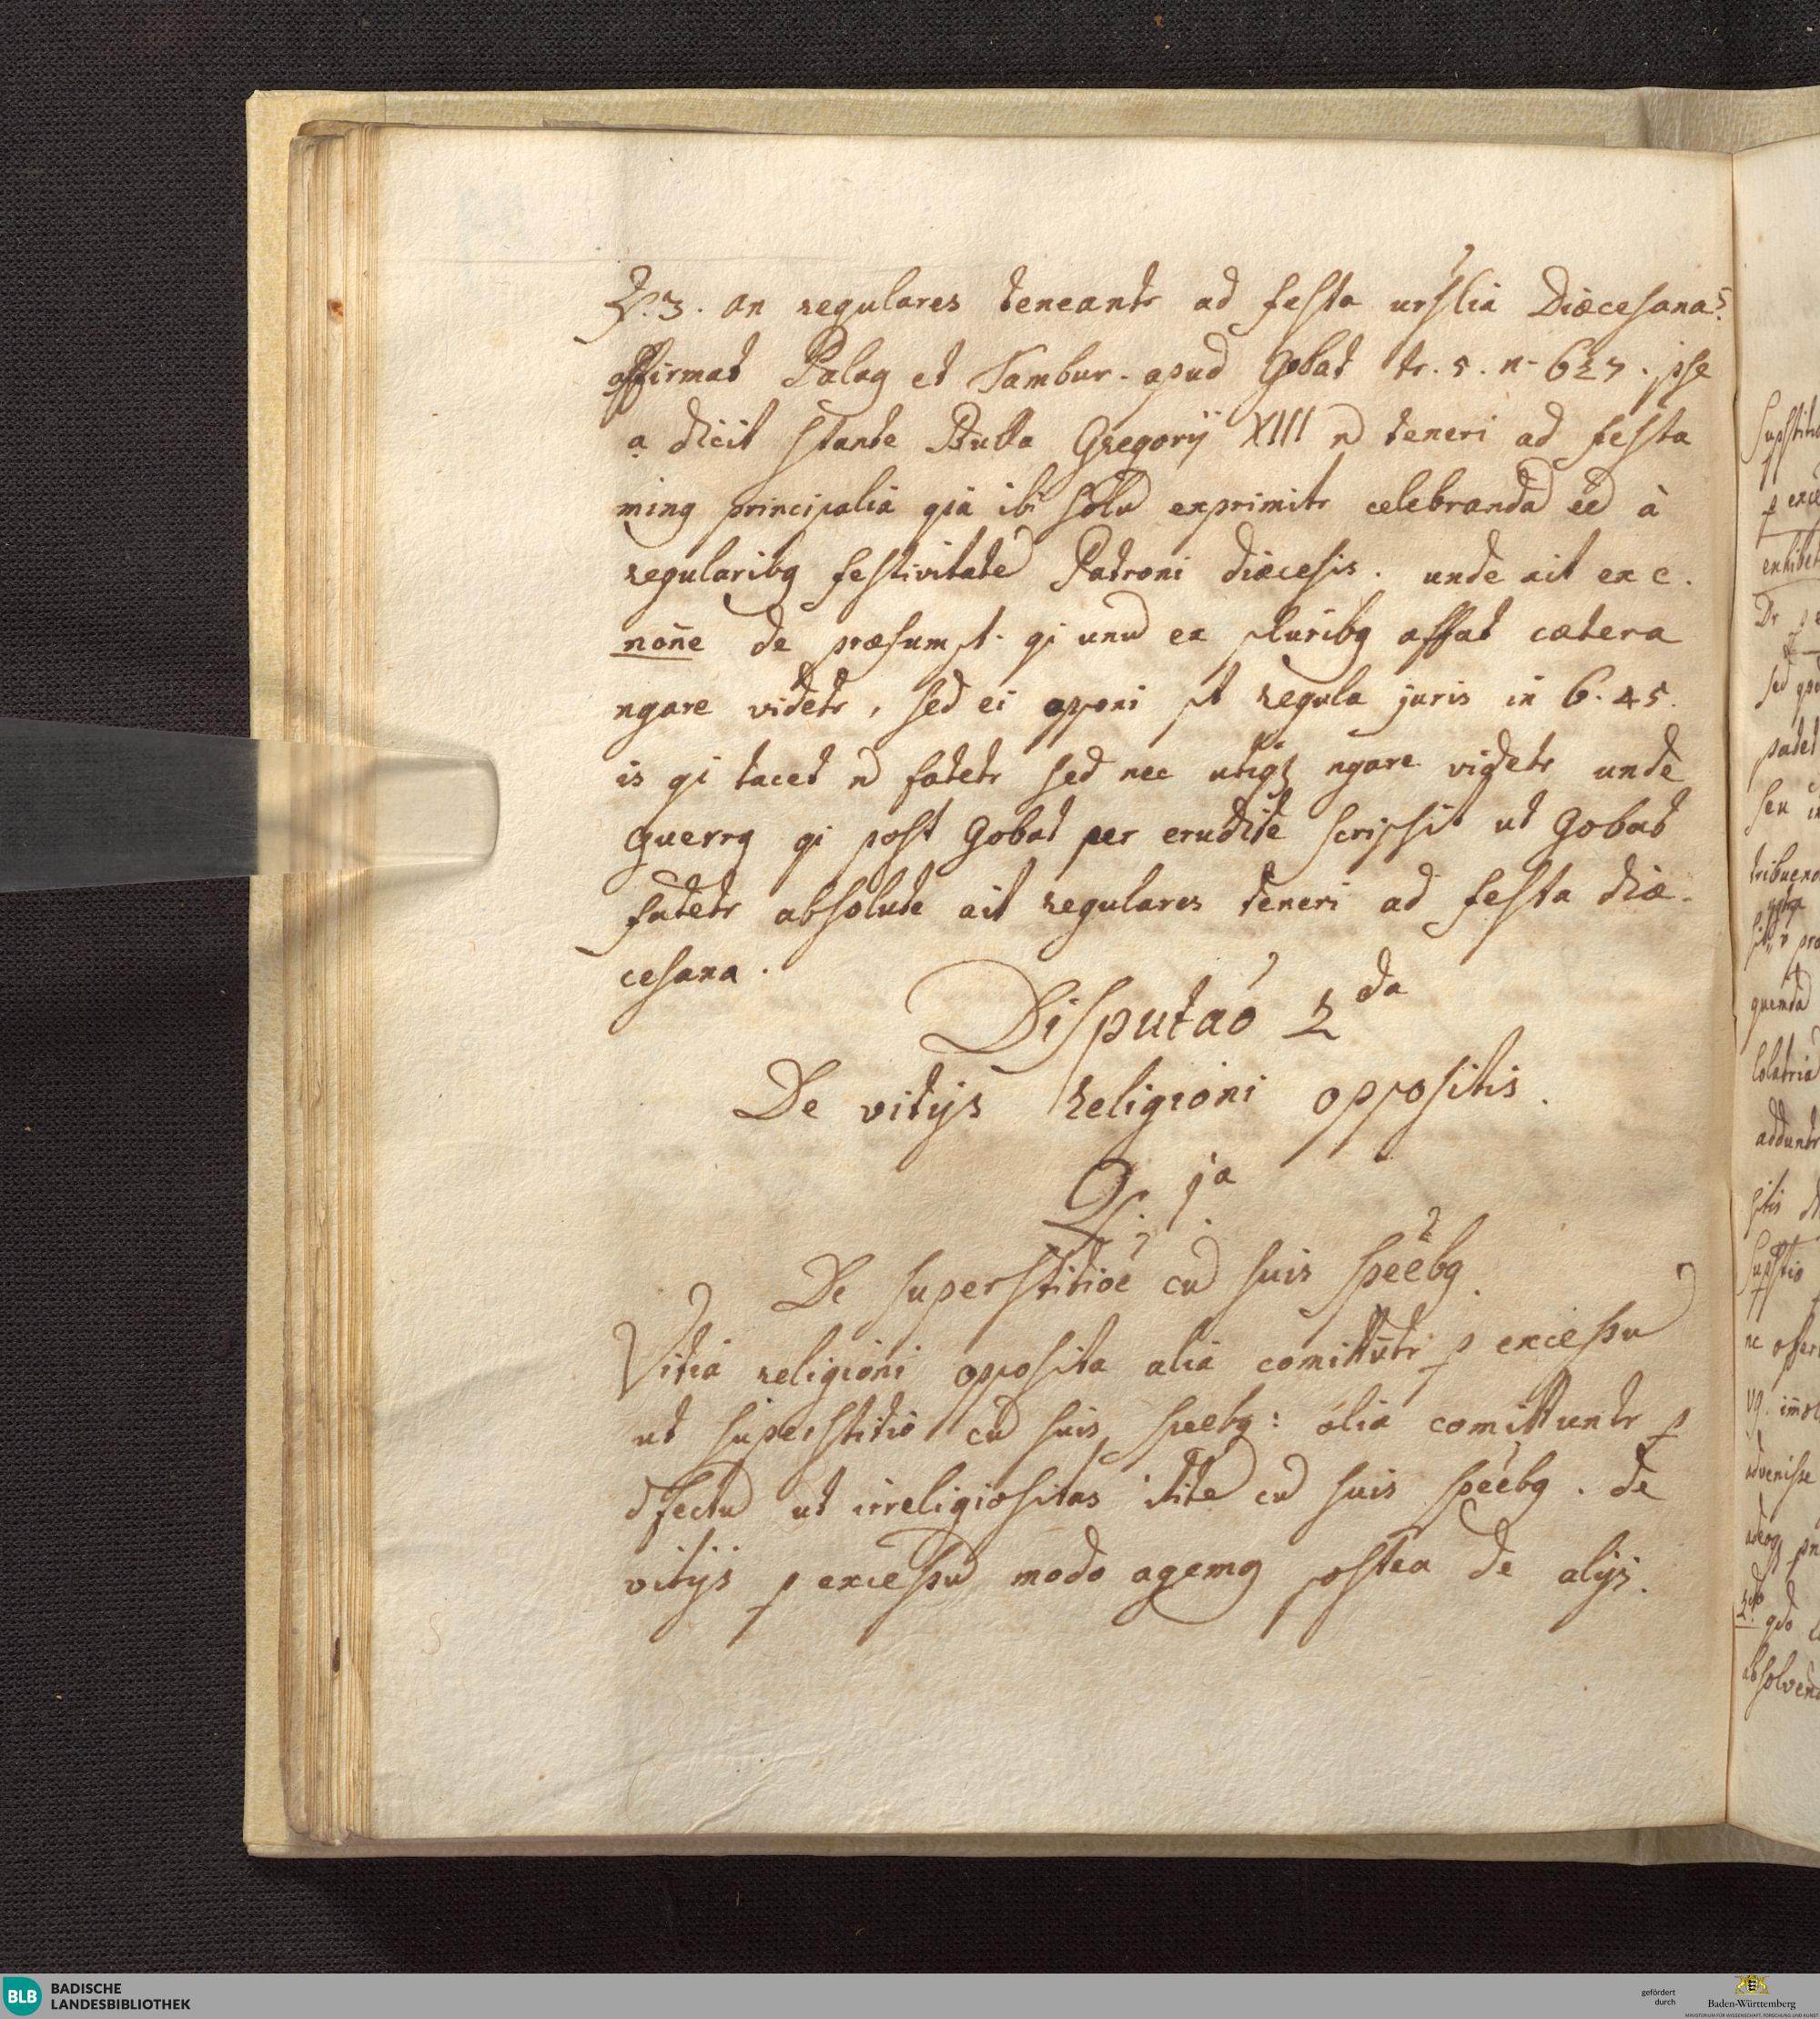 3. an regulares teneantr ad festa urslia Diœcesana?
affirmat Palag et Tambur. apud Gobat tr. 5. n. 627. ipse
a dicit stante Bulla Gregorij XIII n teneri ad festa
ming principalia qia ibi solu exprimitr celebranda ee à
regularibg festivitate Patroni diœcesis. unde ait ex c.
none de præsumpt. qi unu ex pluribg affat cætera
ngare videtr, sed ei opponi pt regula juris in 6. 45.
is qi tacet n fatetr sed nec utiq ngare videtr unde
Querrg qi post Gobat per erudite scripsit ut Gobat
fatetr absolute ait regulares teneri ad festa diœ-
cesana.
Disputao 2da
De vitijs religioni oppositis.
Q. 1a
De superstitioe cu suis speebg.
Vitia religioni opposita alia comittutr p excessu
ut superstitio cu suis speebg: alia comittuntr p
dfectu ut irreligiositas itite cu suis speebg. de
vitijs p excessu modo agemg postea de alijs.
BLB BADISCHE
LANDESBIBLIOTHEK
gefördert
durch
Baden-Württemberg